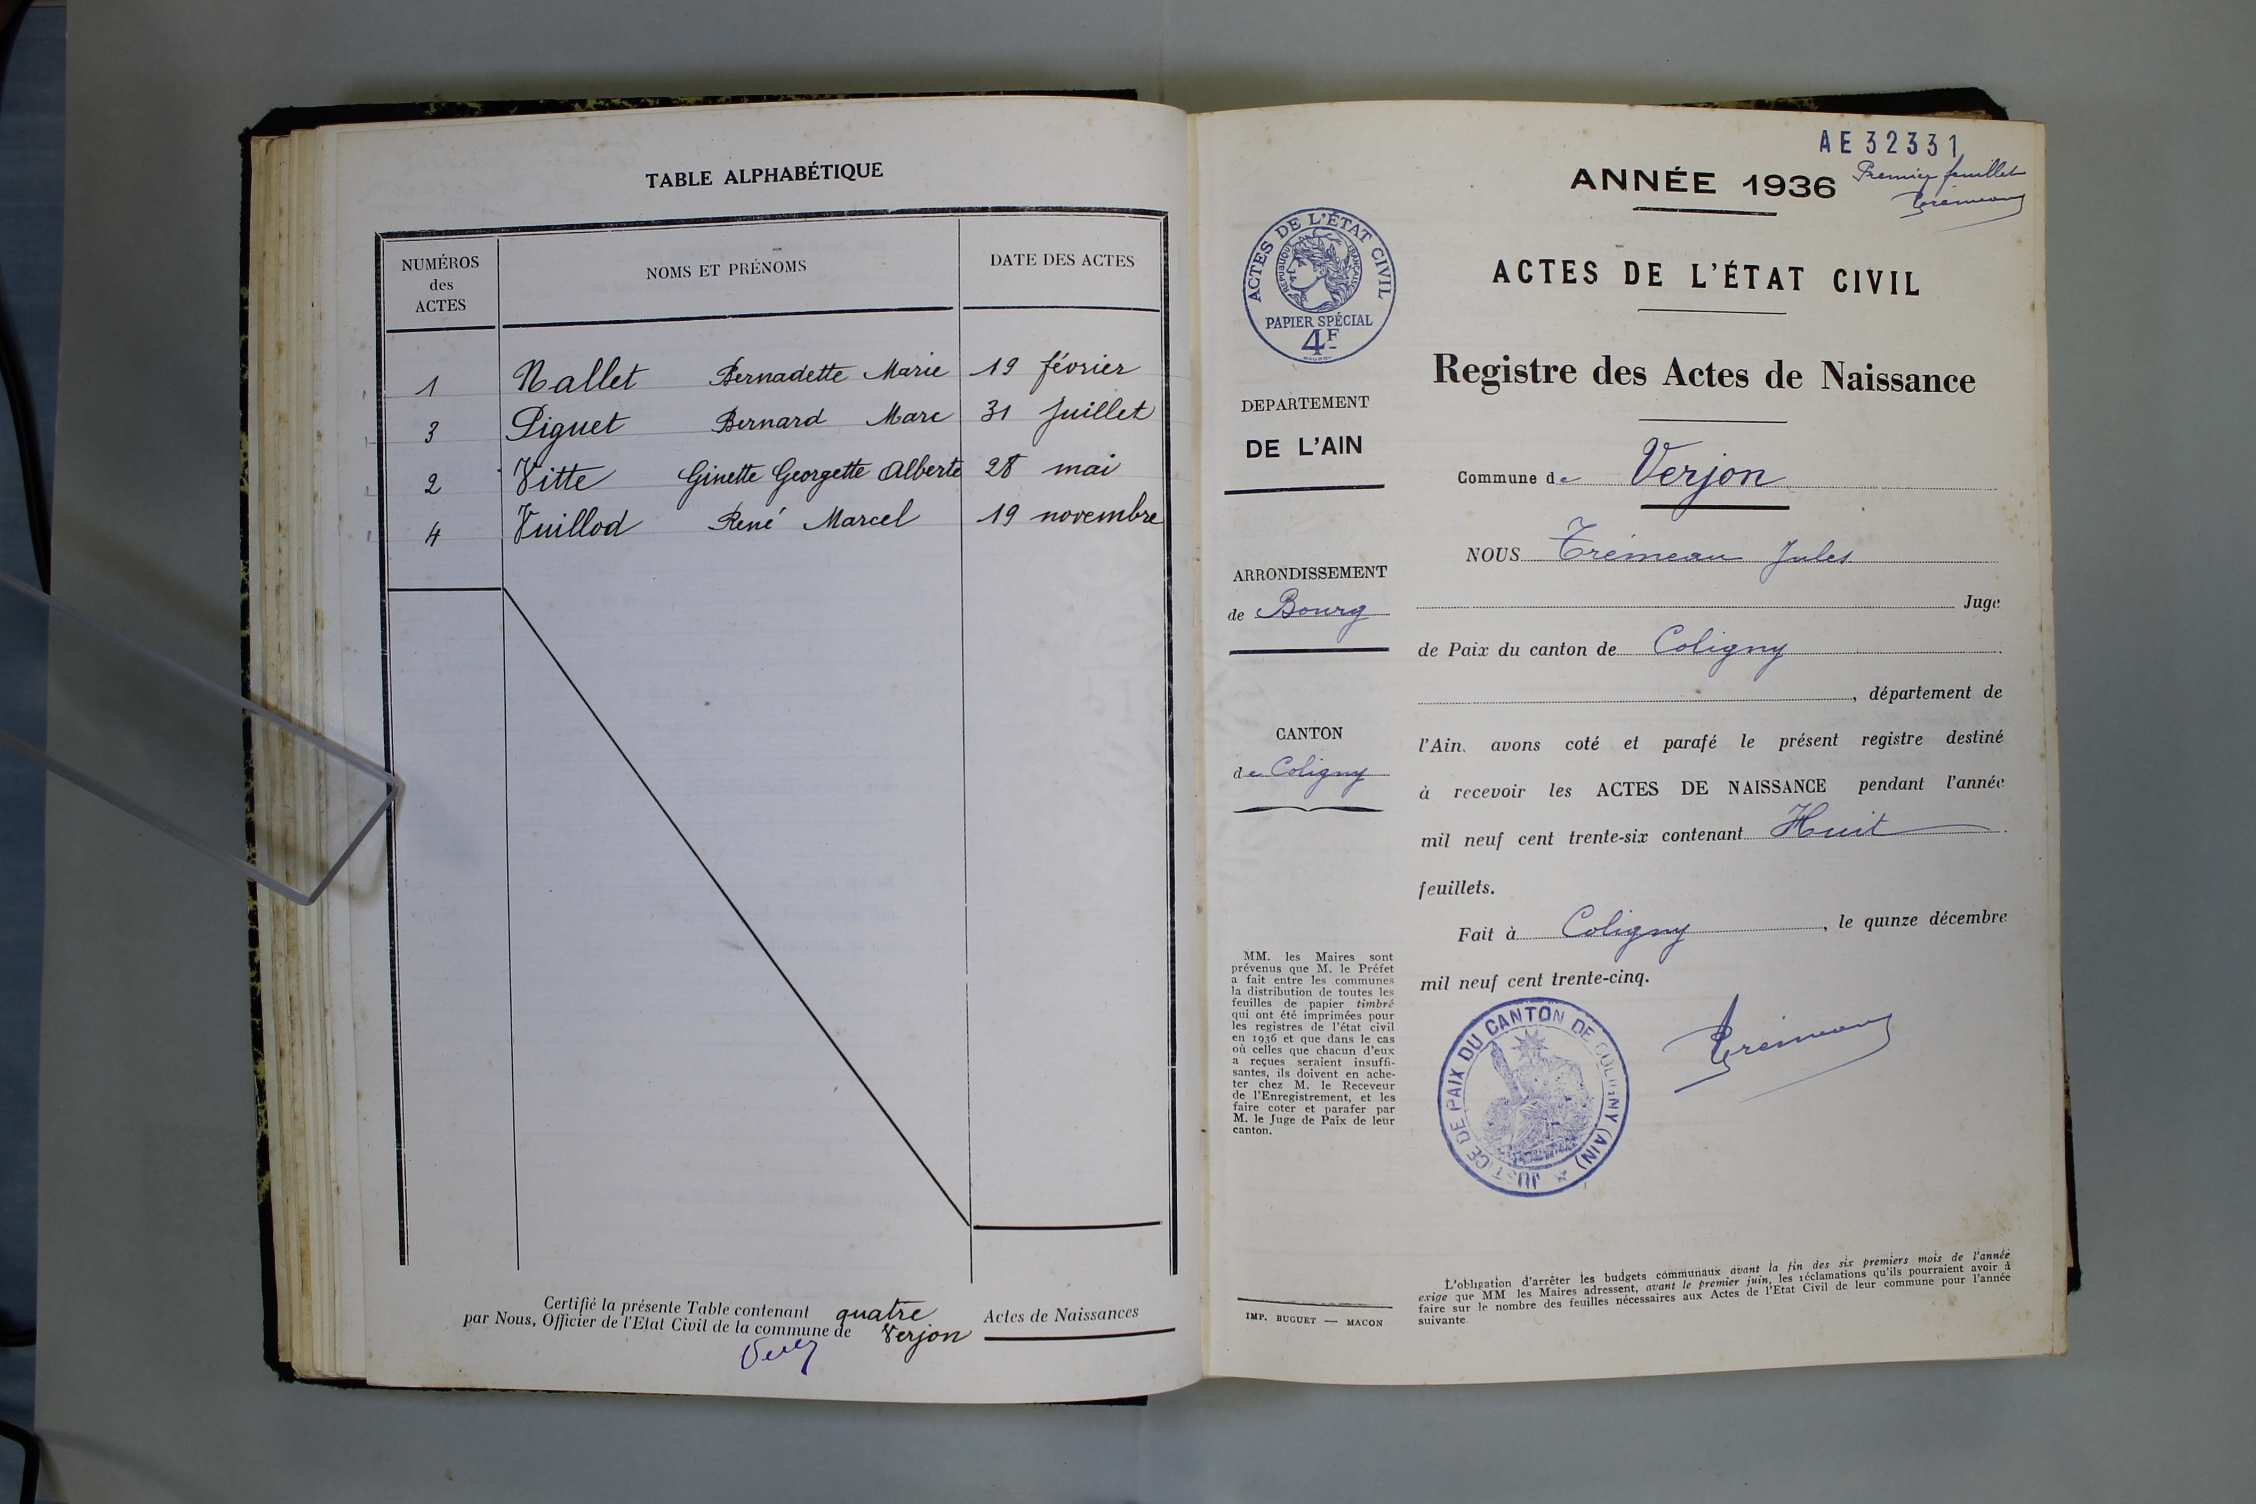 TABLE ALPHABÉTIQUE
NUMÉROS
des
ACTES
NOMS ET PRÉNOMS
DATE DES ACTES
1 Nallet Bernadette Marie 19 février
3 Piguet Bernard Marc 31 Juillet
2 Vitte Ginette Georgette Alberte 28 mai
4 Vuillod René Marcel 19 novembre
Certifié la présente Table contenant quatre Actes de Naissances
par Nous, Officier de l'Etat Civil de la commune de Verjon
AE32331
Premier feuillet
Trémeau
ANNÉE 1936
ACTES DE L'ÉTAT CIVIL
RÉPUBLIQUE FRANÇAISE
PAPIER SPÉCIAL
4F
ACTES DE L'ÉTAT CIVIL
Registre des Actes de Naissance
DEPARTEMENT
DE L'AIN
ARRONDISSEMENT
de Bourg
CANTON
de Coligny
MM. les Maires sont
prévenus que M. le Préfet
a fait entre les communes
la distribution de toutes les
feuilles de papier timbré
qui ont été imprimées pour
les registres de l'état civil
en 1936 et que dans le cas
où celles que chacun d'eux
a reçues seraient insuffi-
santes, ils doivent en ache-
ter chez M. le Receveur
de l'Enregistrement, et les
faire coter et parafer par
M. le Juge de Paix de leur
canton.
IMP. BUGUET — MACON
Commune de Verjon
NOUS Trémeau Jules
Juge
de Paix du canton de Coligny
, département de
l'Ain, avons coté et parafé le présent registre destiné
à recevoir les ACTES DE NAISSANCE pendant l'année
mil neuf cent trente-six contenant Huit
feuillets.
Fait à Coligny, le quinze décembre
mil neuf cent trente-cinq.
JUSTICE DE PAIX DU CANTON DE COLIGNY (AIN)
Trémeau
L'obligation d'arrêter les budgets communaux avant la fin des six premiers mois de l'année
exige que MM les Maires adressent, avant le premier juin, les réclamations qu'ils pourraient avoir à
faire sur le nombre des feuilles nécessaires aux Actes de l'Etat Civil de leur commune pour l'année
suivante